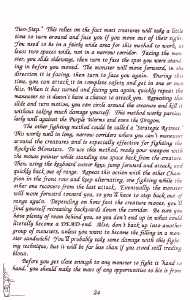 Two-Step." This relies on the fact most creatures will take a little
time to turn around and face you if you move out of their sight.
You need to be in a fairly wide area for this method to work, at
least two spaces wide, not in a narrow corridor. Facing the mon-
ster, you slide sideways, then turn to face the spot you were stand-
ing in before you moved. The monster will move forward, in the
direction it is facing, then turn to face you again. During this
time, you can attack it in complete safety and get in one or two
hits. When it has turned and facing you again, quickly repeat the
maneuver so it doesn't have a chance to attack you. Repeating this
slide and turn motion, you can circle around the creature and kill it
without taking much damage yourself. This method works particu-
larly well against the Purple Worms and even the Dragon.
The other fighting method could be called a "Strategic Retreat."
This works well in long, narrow corridors when you can't maneuver
around the creatures and is especially effective for fighting the
Rockpile Monsters. To use this method, ready your weapon with
the mouse pointer while standing one space back from the creature.
Then using the keyboard cursor keys, jump forward and attack, and
quickly back out of range. Repeat this action with the other Cham-
pion in the front row and keep alternating, one fighting while the
other one recovers from the last attack. Eventually, the monster
will move forward toward you, so you'll have to step back out of
range again. Depending on how fast the creature moves, you'll
find yourself retreating backward down the corridor. Be sure you
have plenty of room behind you, so you don't end up in what could
literally become a DEAD-end. Also, don't back up into another
group of monsters, unless you want to become the filling in a mon-
ster sandwich! You'll probably take some damage with this fight-
ing technique, but it will be far less than if you stood still trading
blows.
Before you get close enough to any monster to fight "hand to
hand," you should make the most of any opportunities to hit it from
24